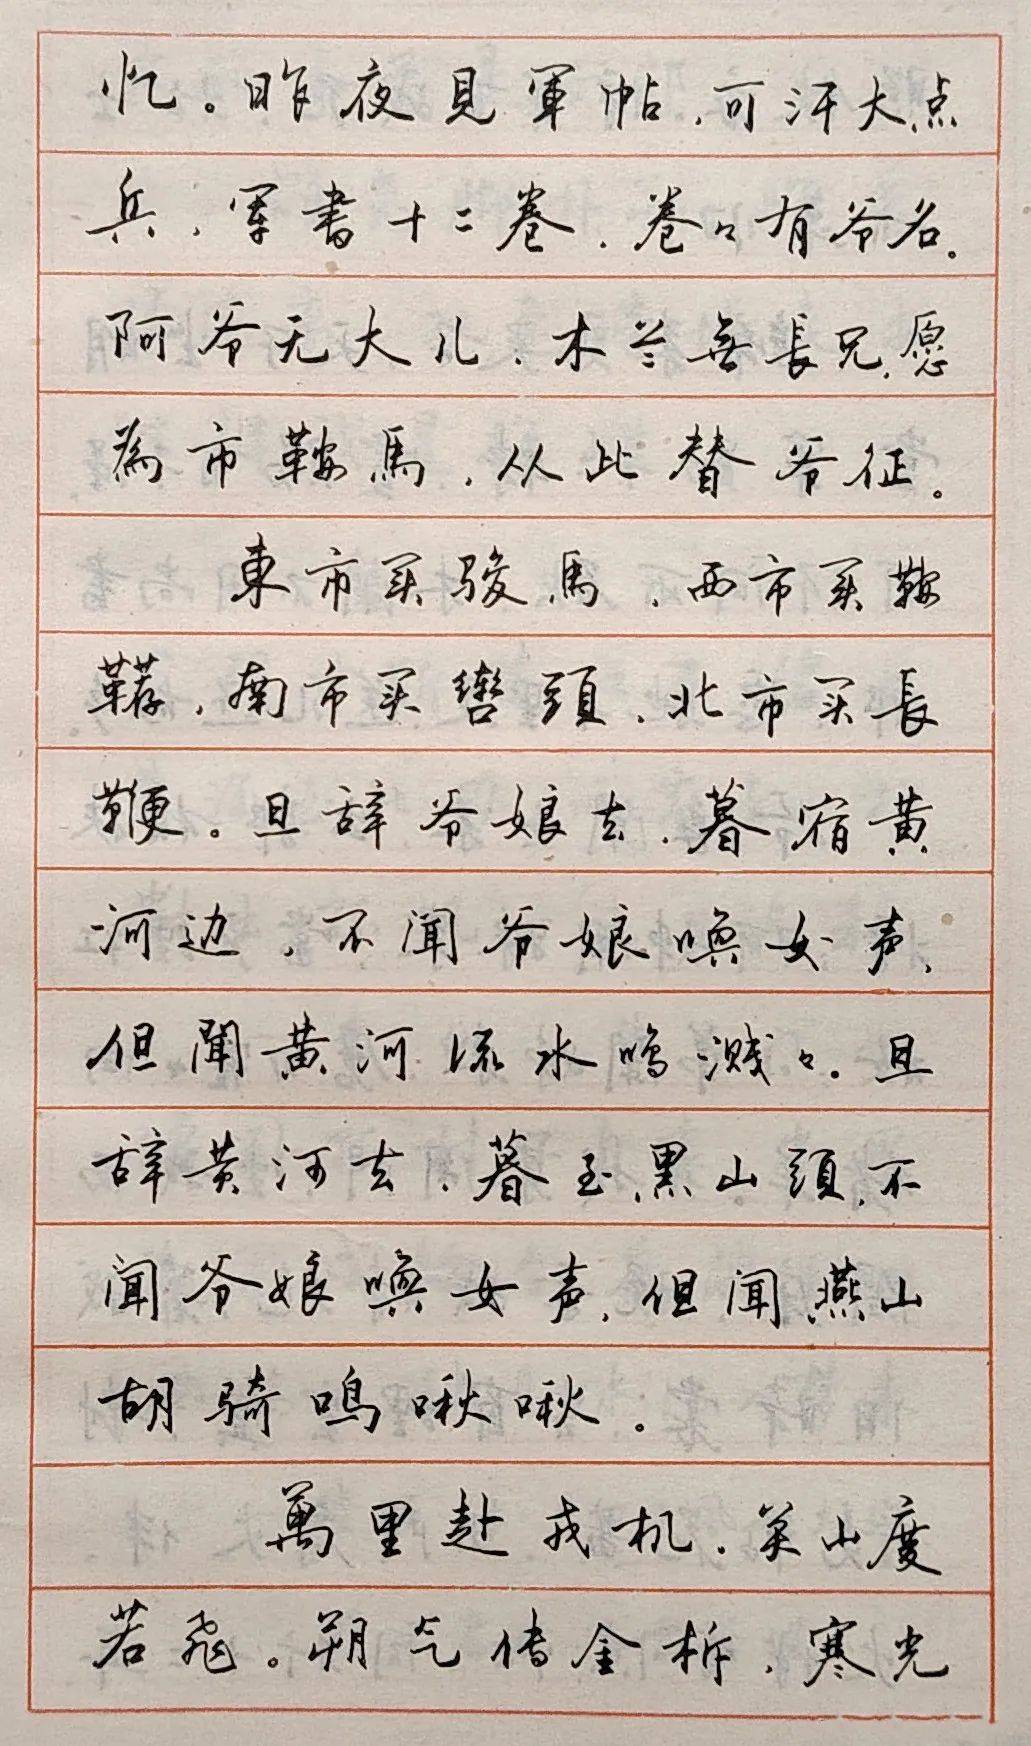 忆。昨夜見軍帖,可汗大点
兵,軍書十二卷,卷々有爷名。
阿爷无大儿,木兰無長兄,愿
為市鞍馬,从此替爷征。
東市买骏馬,西市买鞍
鞯,南市买辔頭,北市买長
鞭。旦辞爷娘去,暮宿黄
河边,不闻爷娘唤女声,
但聞黄河流水鸣溅々。旦
辞黄河去,暮至黑山頭,不
闻爷娘唤女声,但闻燕山
胡骑鳴啾啾。
萬里赴戎机,关山度
若飞。朔气传金柝,寒光